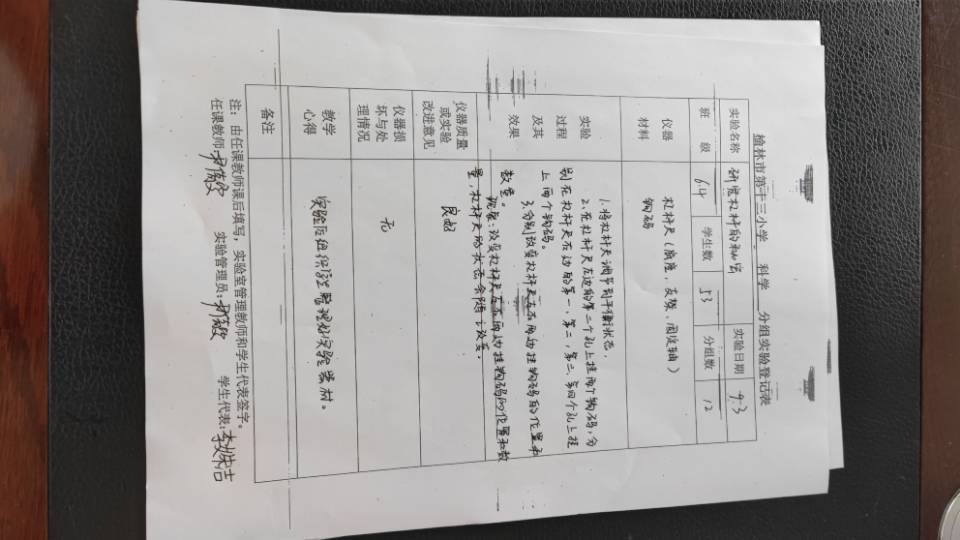 榆林市第十三小学 科学 分组实验登记表
实验名称 研究杠杆的秘密 实验日期 9.3
班 级 6.4 学生数 53 分组数 12
仪器
材料
杠杆尺(底座、支架、固定轴)
钩码
实验
过程
及其
效果
1.将杠杆尺调节到平衡状态,
2.在杠杆尺左边的第二个孔上挂两个钩码,分
别在杠杆尺右边的第一、第二、第三、第四个孔上挂
上两个钩码。
3.分别改变杠杆尺左右两边挂钩码的位置和
数量。
现象:改变杠杆尺左右两边挂钩码的位置和数
量,杠杆尺的状态会随之改变。
仪器质量
或实验
改进意见
良好
仪器损
坏与处
理情况
无
教学
心得
实验后组织学生整理好实验器材。
备注
注:由任课教师课后填写,实验室管理教师和学生代表签字。
任课教师: 实验管理员: 学生代表: